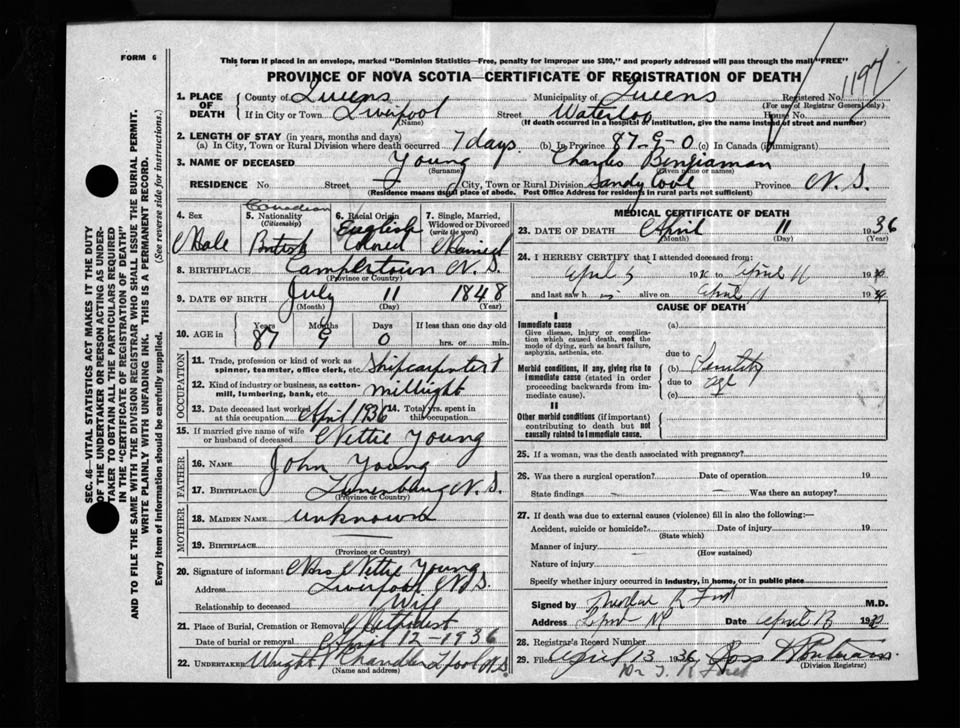 FORM 6
This form if placed in an envelope, marked "Dominion Statistics—Free, penalty for improper use $300," and properly addressed will pass through the mail "FREE"
PROVINCE OF NOVA SCOTIA—CERTIFICATE OF REGISTRATION OF DEATH
1197
1. PLACE OF DEATH County of Queens Municipality of Queens Registered No.
(For use of Registrar General only)
If in City or Town Liverpool Street Waterloo House No.
(Name) (If death occurred in a hospital or institution, give the name instead of street and number)
2. LENGTH OF STAY (in years, months and days)
(a) In City, Town or Rural Division where death occurred 7 days (b) In Province 87-9-0 (c) In Canada (if immigrant)
3. NAME OF DECEASED Young Charles Benjiaman
(Surname) (Given name or names)
RESIDENCE No. Street City, Town or Rural Division Sandy Cove Province N.S.
(Residence means usual place of abode. Post Office Address for residents in rural parts not sufficient)
4. Sex Male
5. Nationality (Citizenship) Canadian British
6. Racial Origin English
7. Single, Married, Widowed or Divorced (write the word) Married
8. BIRTHPLACE N.S.
(Province or Country)
9. DATE OF BIRTH July 11 1848
(Month) (Day) (Year)
10. AGE in Years 87 Months 9 Days 0 If less than one day old hrs. or min.
OCCUPATION
11. Trade, profession or kind of work as spinner, teamster, office clerk, etc. Shipcarpenter &
12. Kind of industry or business, as cotton-mill, lumbering, bank, etc. millright
13. Date deceased last worked at this occupation April 1936 14. Total yrs. spent in this occupation
15. If married give name of wife or husband of deceased Nettie Young
FATHER
16. NAME John Young
17. BIRTHPLACE Lunenburg N.S.
(Province or Country)
MOTHER
18. MAIDEN NAME unknown
19. BIRTHPLACE
(Province or Country)
20. Signature of informant Mrs Nettie Young
Address Liverpool N.S.
Relationship to deceased Wife
21. Place of Burial, Cremation or Removal
Date of burial or removal April 12-1936
22. UNDERTAKER Wright & Chandler L'pool N.S.
(Name and address)
MEDICAL CERTIFICATE OF DEATH
23. DATE OF DEATH April 11 1936
(Month) (Day) (Year)
24. I HEREBY CERTIFY that I attended deceased from:
April 5 19 to April 11 19
and last saw h im alive on April 11 19
CAUSE OF DEATH
I
Immediate cause
Give disease, injury or complication which caused death, not the mode of dying, such as heart failure, asphyxia, asthenia, etc.
(a)
due to
Morbid conditions, if any, giving rise to immediate cause (stated in order proceeding backwards from immediate cause).
(b) Senility
due to age
(c)
II
Other morbid conditions (if important) contributing to death but not causally related to immediate cause.
25. If a woman, was the death associated with pregnancy?
26. Was there a surgical operation? Date of operation 19
State findings Was there an autopsy?
27. If death was due to external causes (violence) fill in also the following:—
Accident, suicide or homicide? Date of injury 19
(State which)
Manner of injury
(How sustained)
Nature of injury
Specify whether injury occurred in industry, in home, or in public place
Signed by M.D.
Address Date April 19
28. Registrar's Record Number
29. Filed April 13 1936 Ross
(Division Registrar)
SEC. 46—VITAL STATISTICS ACT MAKES IT THE DUTY
OF THE UNDERTAKER OR PERSON ACTING AS UNDERTAKER TO OBTAIN ALL THE PARTICULARS REQUIRED
IN THE "CERTIFICATE OF REGISTRATION OF DEATH"
AND TO FILE THE SAME WITH THE DIVISION REGISTRAR WHO SHALL ISSUE THE BURIAL PERMIT.
WRITE PLAINLY WITH UNFADING INK. THIS IS A PERMANENT RECORD.
Every item of information should be carefully supplied. (See reverse side for instructions.)